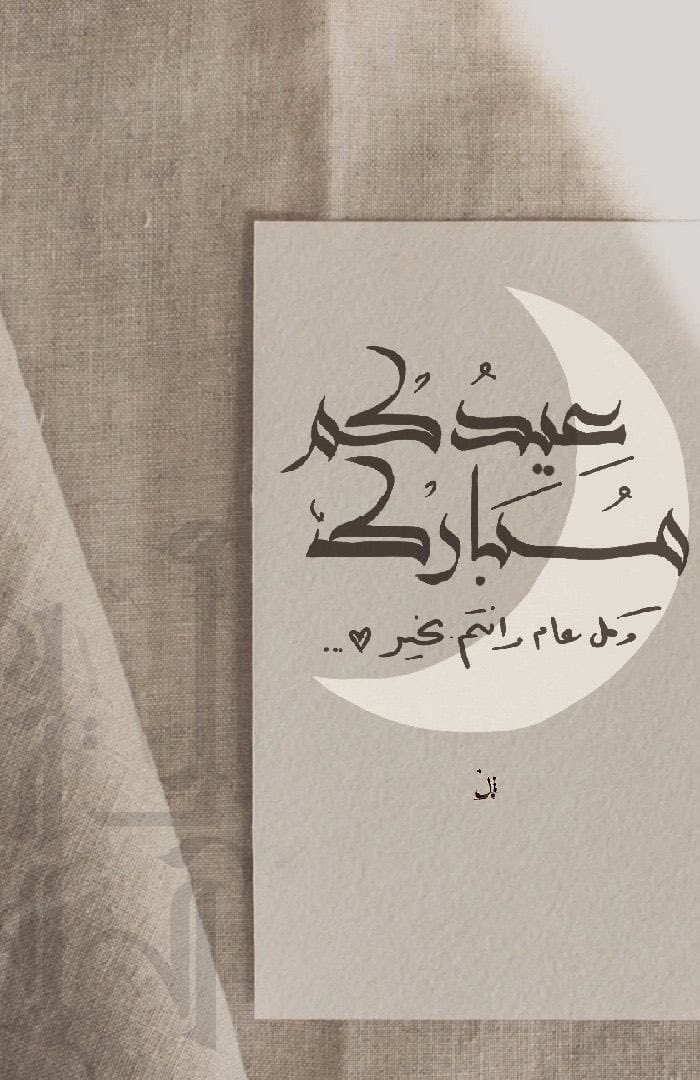 عِيدُكُم
مُبَارك
وَكل عام وانتَم بخيِر ♥...